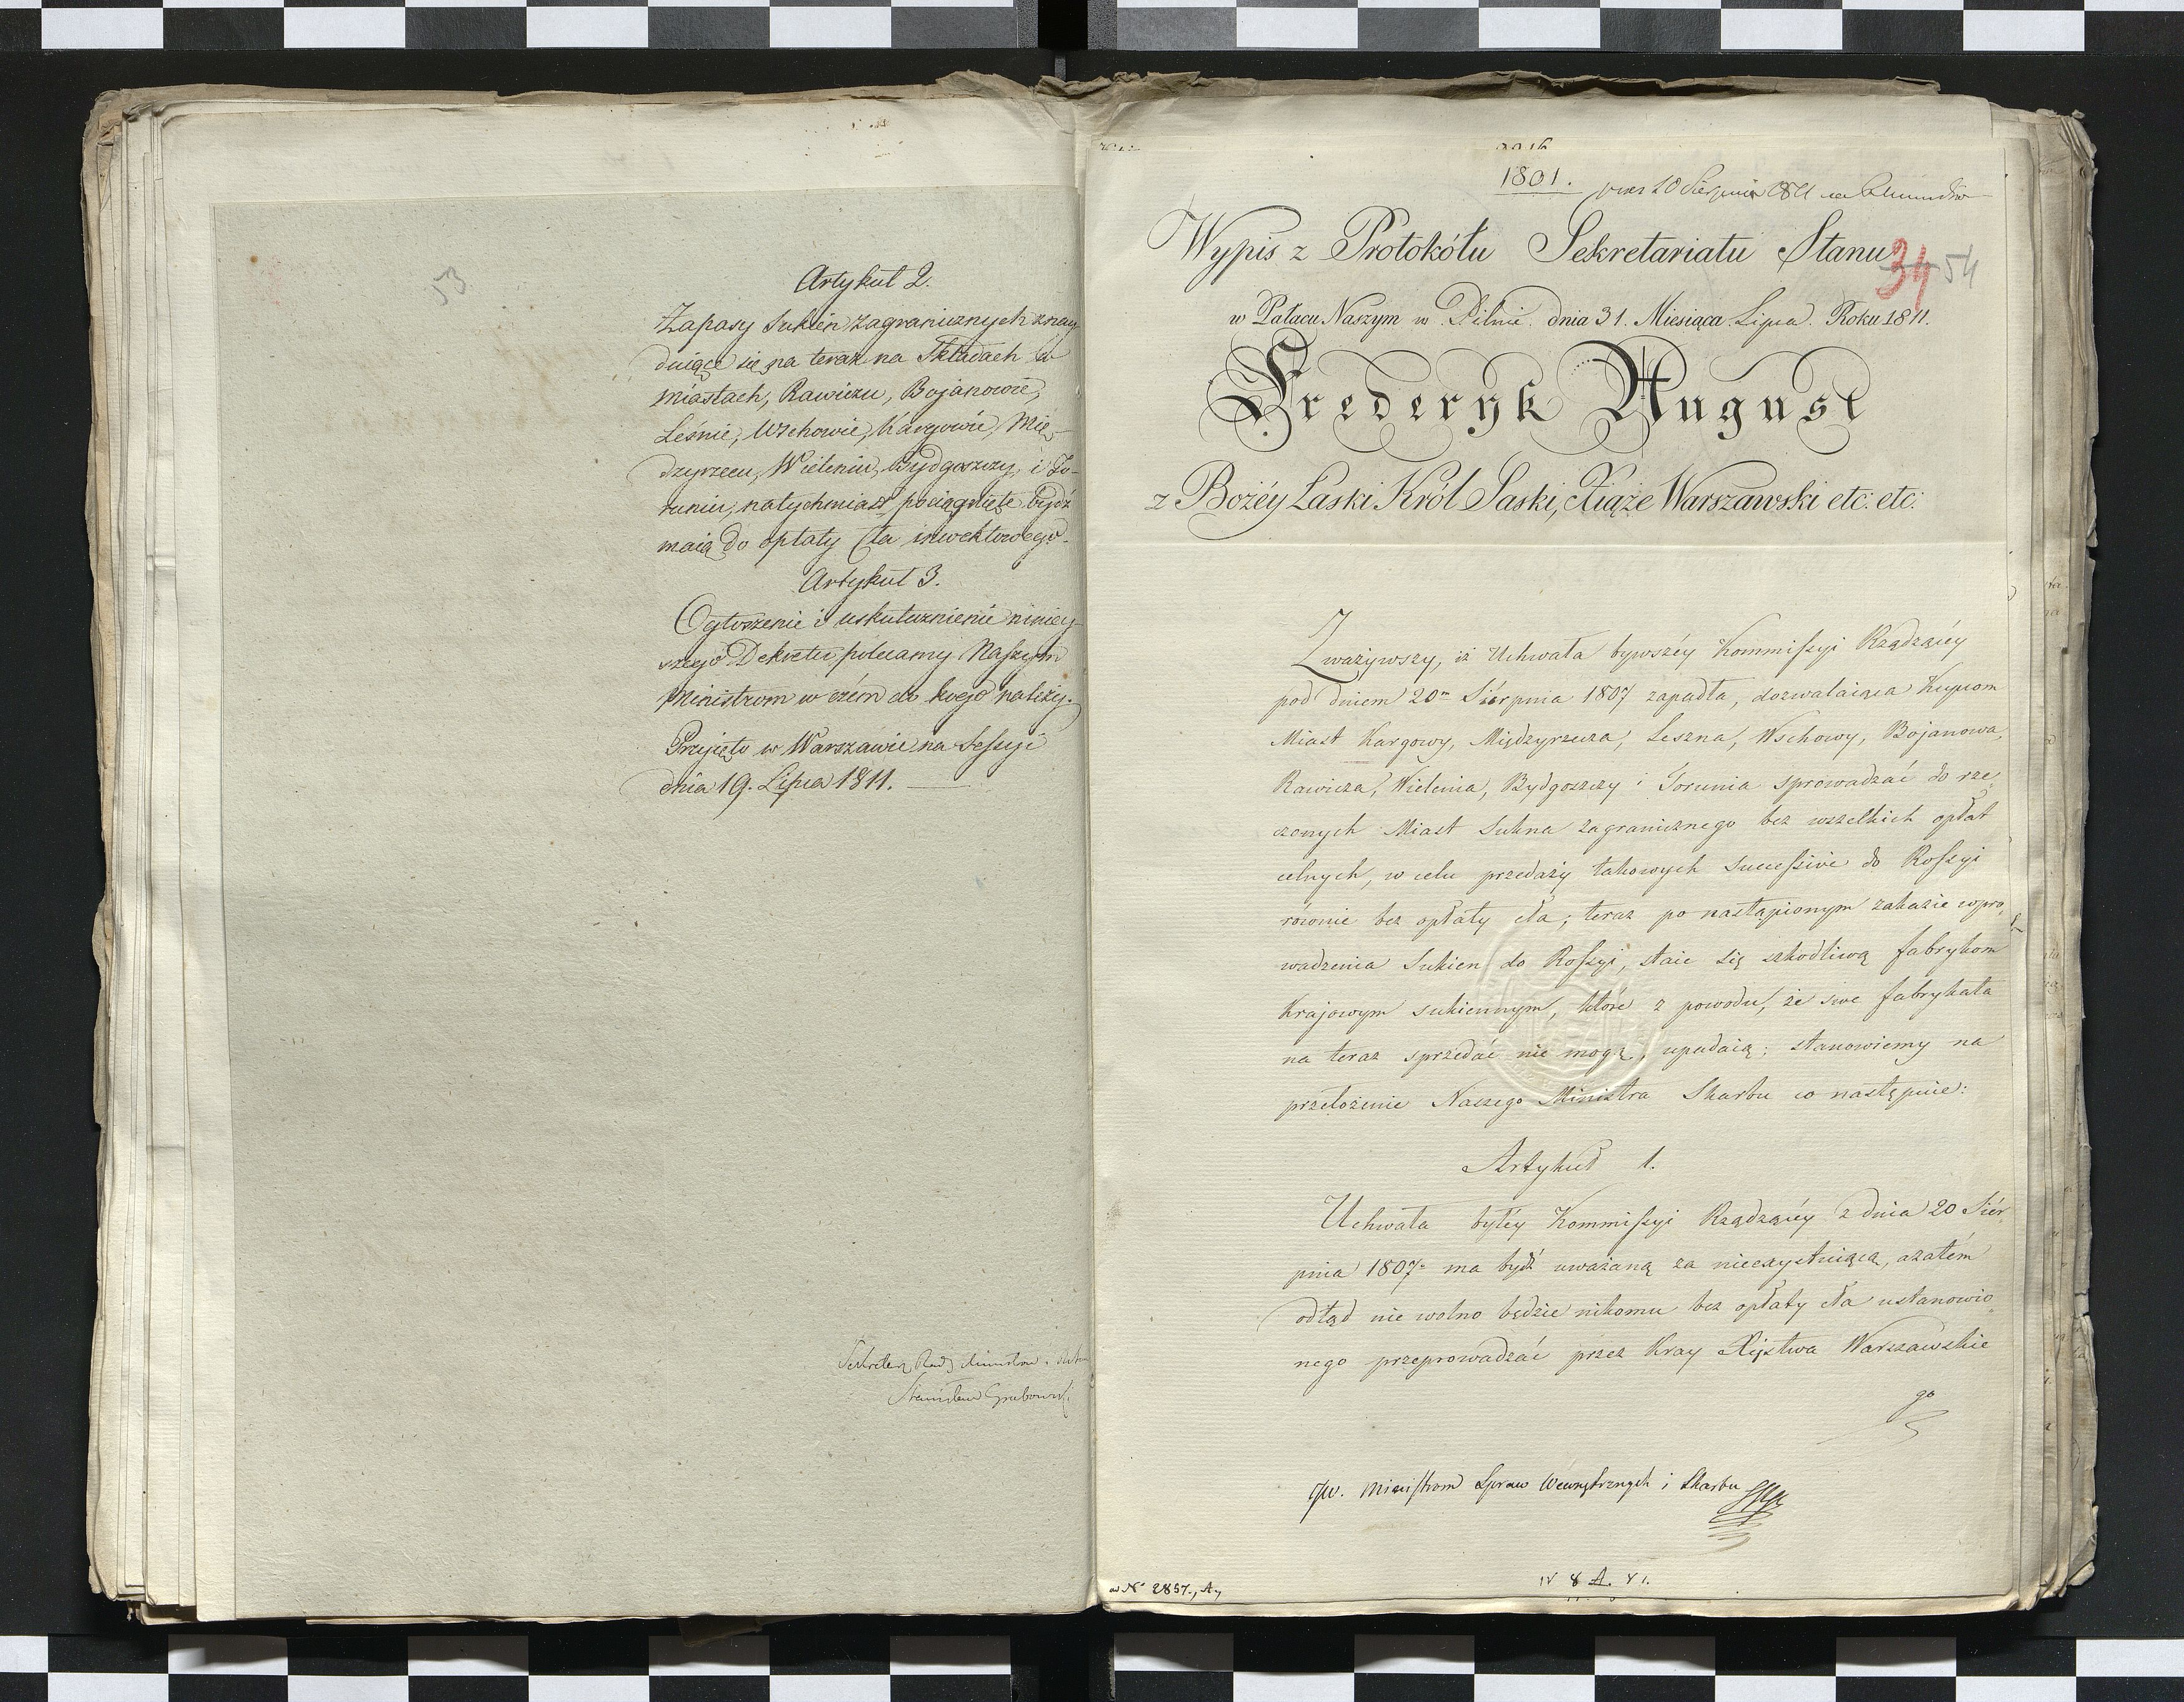 53
Artykuł 2.
Zapasy Sukien zagranicznych znay-
duiące się na teraz na Składach w
miastach, Rawiczu, Bojanowie,
Leśnie, Wschowie, Kargowie, Mię-
dzyrzecu, Wieleniu, Bydgoszczy, i To-
runiu, natychmiast pociągnięte bydź
maią do opłaty Cła inwektowego.
Artykuł 3.
Ogłoszenie i uskutecznienie niniey-
szego Dekretu polecamy Naszym
Ministrom w czém do kogo należy.
Przyięto w Warszawie na Sessyi
dnia 19. Lipca 1811.
Sekretarz Rady Ministrów
Stanisław Grabowski
1801.
20 Sierpnia
Wypis z Protokółu Sekretariatu Stanu
34 54
w Pałacu Naszym w Pilnic. dnia 31. Miesiąca Lipca. Roku 1811.
Frederyk August
z Bożéy Łaski Król Saski, Xiąże Warszawski etc: etc:
Zważywszy, iż Uchwała bywszéy Kommissyi Rządzącéy
pod dniem 20m Siérpnia 1807 zapadła, dozwalaiąca Kupcom
Miast Kargowy, Międzyrzecza, Leszna, Wschowy, Bojanowa,
Rawicza, Wielenia, Bydgoszczy i Torunia sprowadzać do rze-
czonych Miast Sukna zagranicznego bez wszelkich opłat
celnych, w celu przedaży takowych Successive do Rossyi
równie bez opłaty cła; teraz po nastąpionym zakazie wpro-
wadzenia Sukien do Rossyi, staie się szkodliwą fabrykom
Krajowym sukiennym, które z powodu, że swe fabrykata
na teraz sprzedać nie mogą, upadaią; stanowiemy na
przełożenie Naszego Ministra Skarbu co następuie:
Artykuł 1.
Uchwała byłéy Kommissyi Rządzącéy z dnia 20 Siér-
pnia 1807. ma bydź uważaną za nieexystuiącą, azatém
odtąd nie wolno będzie nikomu bez opłaty cła ustanowio-
nego przeprowadzać przez Kray Xięstwa Warszawskie
go
Ministrom Spraw Wewnętrznych i Skarbu
N° 2857., A.